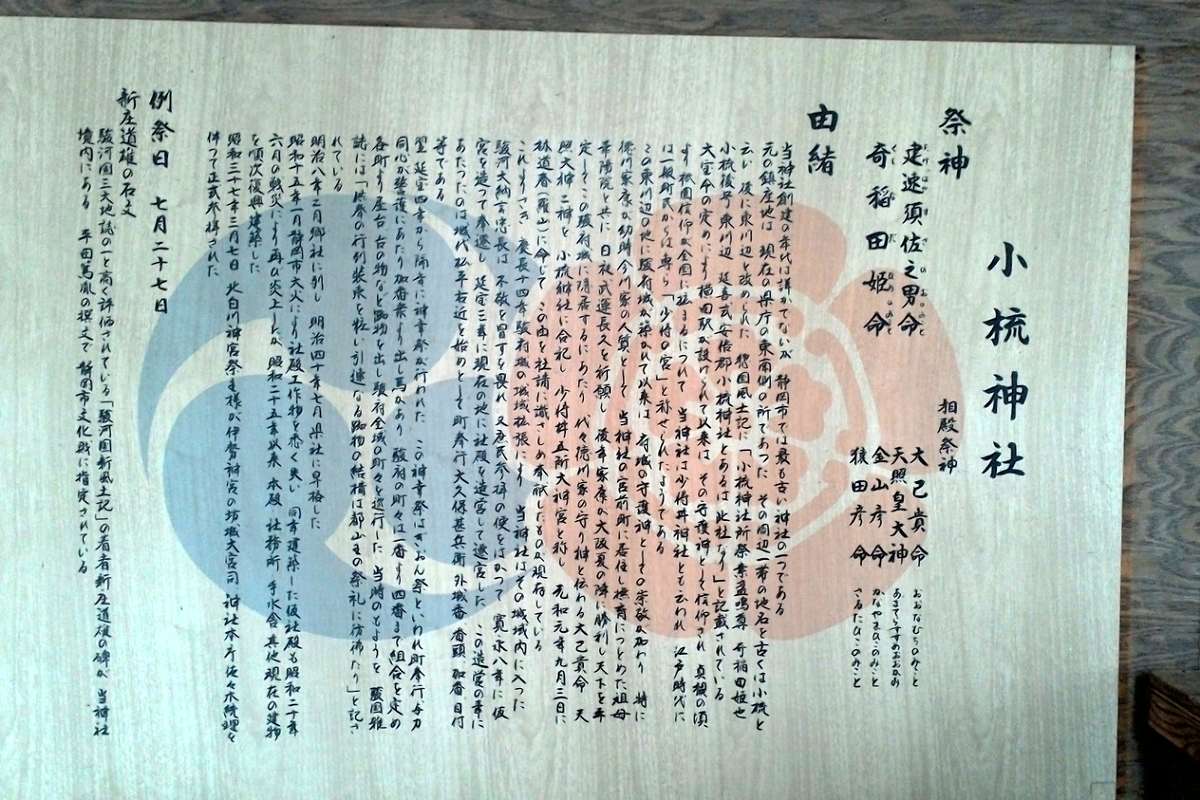 小梳神社
祭神
建速須佐之男命
たけはやすさのおのみこと
奇稲田姫命
くしいなだひめのみこと
相殿祭神
大己貴命 おおなむちのみこと
天照皇大神 あまてらすすめおおかみ
金山彦命 かなやまひこのみこと
猿田彦命 さるたひこのみこと
由緒
当神社創建の年代は詳かでないが 静岡市では最も古い神社の一つである
元の鎮座地は 現在の県庁の東南側の所であつた その周辺一帯の地名を古くは小梳と
云い 後に東川辺と改められた 惣国風土記に「小梳神社所祭素盞嗚尊 奇稲田姫也
小梳後号東川辺 延喜式安倍郡小梳神社とあるは此社なり」と記載されている
大宝令の定めにより横田駅が設けられて以来は その守護神として信仰され 貞観の頃
より祇園信仰が全国に拡まるにつれて 当神社は少将井神社とも云われ 江戸時代に
は一般町民からは専ら「少将の宮」と称せられたようである
この東川辺の地に駿府城が築かれて以来は 府城の守護神としての崇敬が加わり 特に
徳川家康が幼時今川家の人質として 当神社の宮前町に居住し撫育につとめた祖母
華陽院と共に 日夜武運長久を祈願し 後年家康が大阪夏の陣に勝利し天下を平
定してこの駿府城に隠居するにあたり 代々徳川家の守り神と伝わる大己貴命 天
照大神二神を 小梳神社に合祀し 少将井五所大神宮と称し 元和元年九月三日に
林道春(羅山)に命じて この由を社譜に識さしめ奉献したものが現存している
これよりさき 慶長十四年駿府城の城域拡張により 当神社はその城域内に入つた
駿河大納言忠長は 不敬を冒すを畏れ 又庶民参拝の便をはかつて 寛永八年に仮
宮を造つて奉遷し 延宝三年に現在の地に社殿を造営して遷宮した この造営の業に
あたつたのは城代松平右近を始めとして町奉行大久保甚兵衛 外城番 番頭 加番 目付
等である
翌延宝四年から隔年に神幸祭が行われた この神幸祭はぎおん祭といわれ町奉行与力
同心が警護にあたり加番衆より出し馬があり 駿府の町々は一番より四番まで組合を定め
各町より屋台 台の物など踟物を出し駿府全域の町々を巡行した 当時のもようを 駿国雅
誌には「供奉の行列装束を粧い引連なる踟物の結構は都山王の祭礼に彷彿たり」と記さ
れている
明治八年二月郷社に列し 明治四十年七月県社に昇格した
昭和十五年一月静岡市大火により社殿工作物を悉く失い 同年建築した仮社殿も昭和二十年
六月の戦災により再び炎上したが 昭和二十五年以来 本殿 社務所 手水舎 其他現在の建物
を順次復興建築した
昭和三十七年三月七日 北白川神宮祭主様が伊勢神宮の坊城大宮司 神社本庁佐々木統理を
伴つて正式参拝された
例祭日 七月二十七日
新庄道雄の石文
駿河国三大地誌の一と高く評価されている「駿河国新風土記」の著者新庄道雄の碑が 当神社
境内にある 平田篤胤の撰文で 静岡市文化財に指定されている